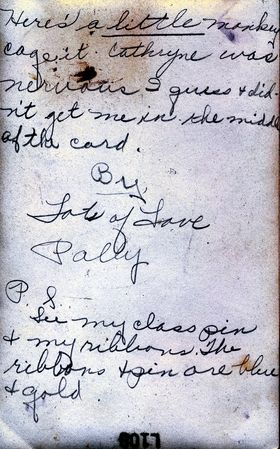 Here's a little monkey
cage it. Cathryne was
nervous I guess & did-
n't get me in the middle
of the card.
By,
Lots of Love
Patty
P. S.
See my class pin
& my ribbons. The
ribbons & pin are blue
& gold
L100